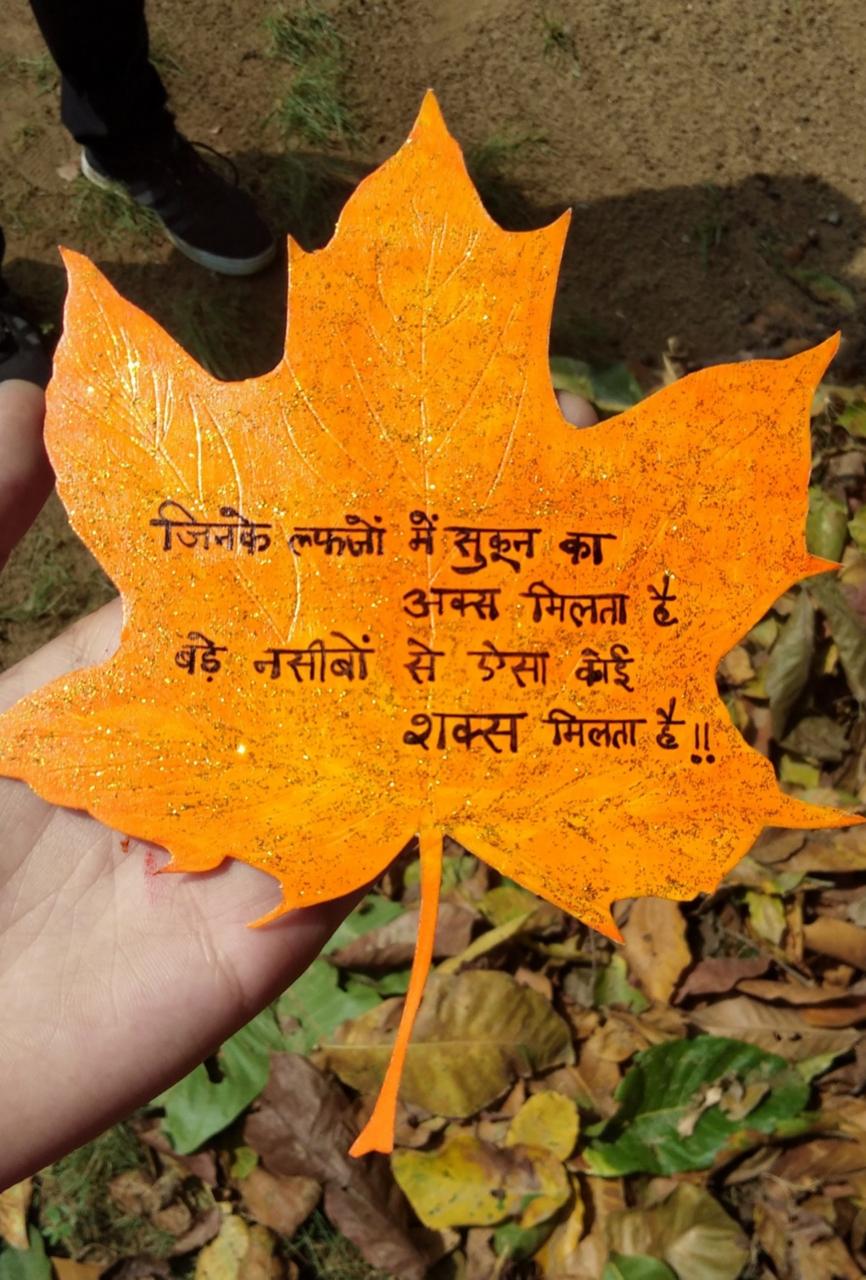 जिनके ल्फजों में सुकून का
अक्स मिलता है
बड़े नसीबों से ऐसा कोई
शक्स मिलता है !!